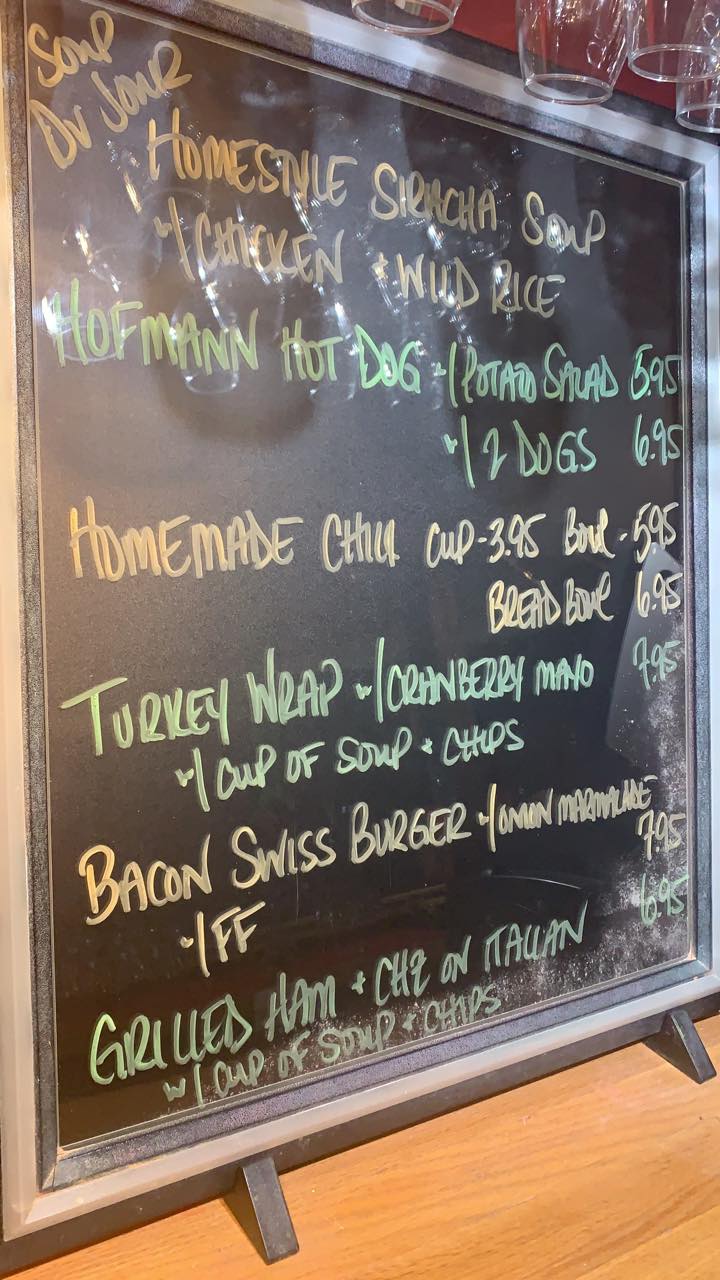 Soup
Du Jour
HOMESTYLE SIRACHA SOUP
w/ CHICKEN + WILD RICE
HOFMANN HOT DOG w/ POTATO SALAD 5.95
w/ 2 DOGS 6.95
HOMEMADE CHILI CUP-3.95 BOWL-5.95
BREAD BOWL 6.95
TURKEY WRAP w/ CRANBERRY MAYO 7.95
w/ CUP OF SOUP + CHIPS
BACON SWISS BURGER w/ ONION MARMALADE
7.95
w/ FF
6.95
GRILLED HAM + CHZ ON ITALIAN
w/ CUP OF SOUP + CHIPS